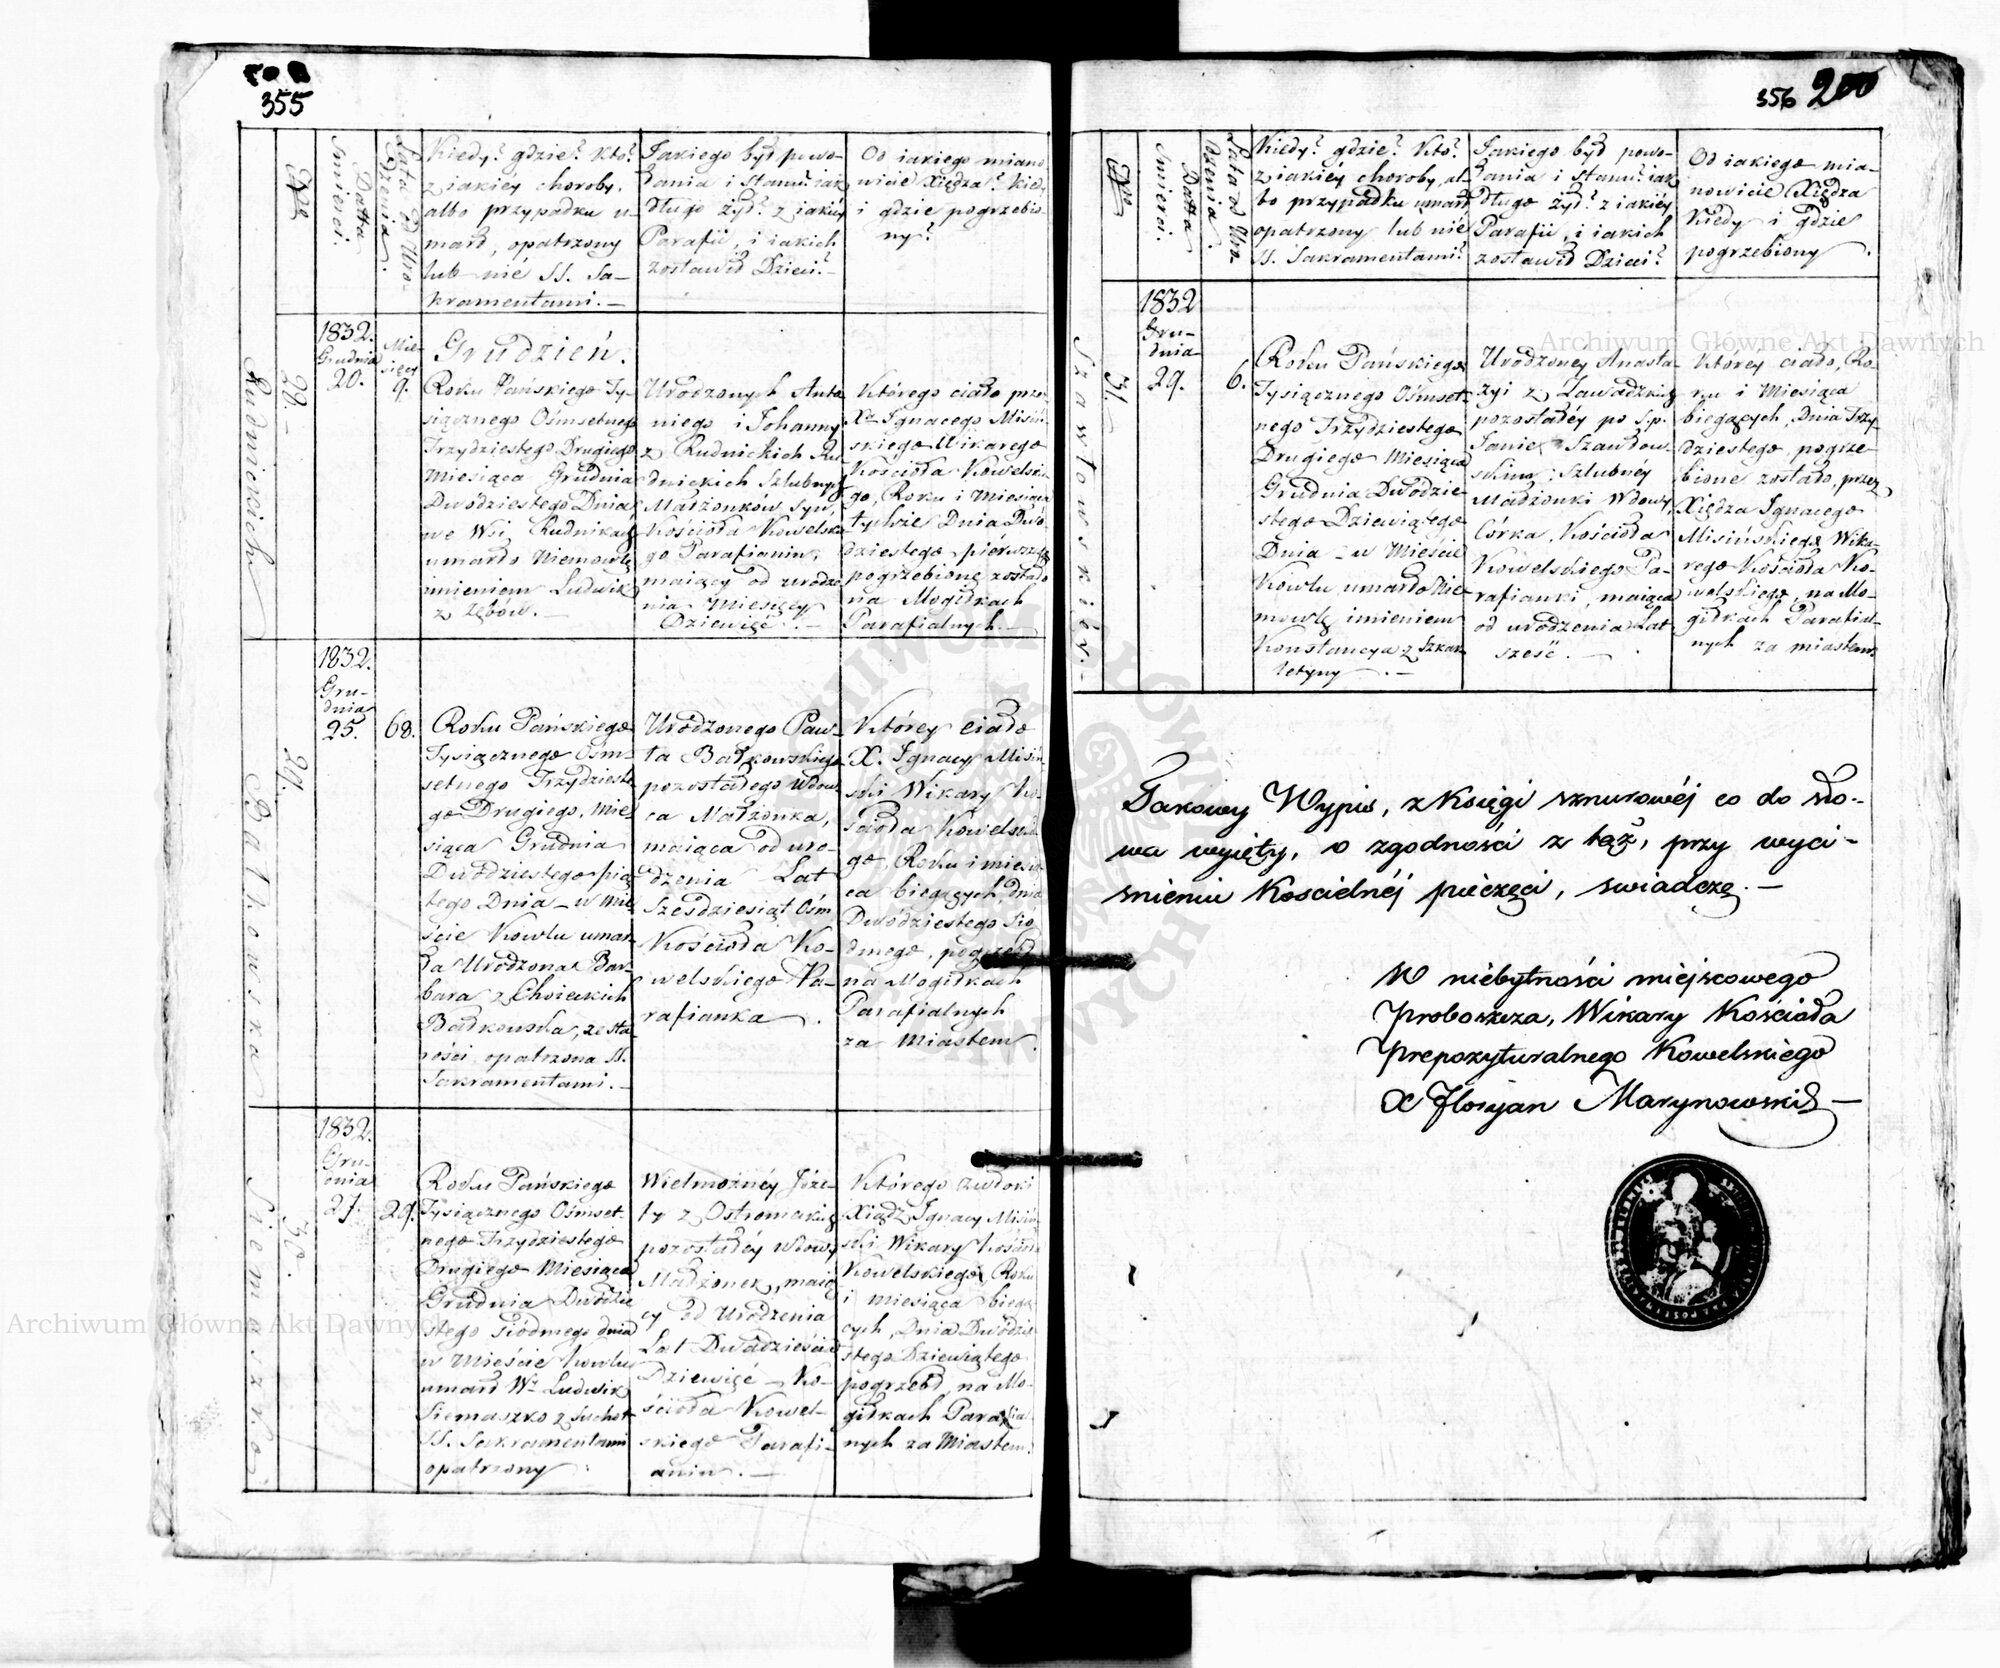 355
Nro
Datta
Smierci.
Lata od Uro-
dzenia.
Kiedy? gdzie? kto?
z iakiéy choroby,
albo przypadku u-
marł, opatrzony
lub nié SS. Sa-
kramentami. —
Jakiego był powo-
łania i stanu? iak
długo żył? z iakiéy
Parafii, i iakich
zostawił Dzieci? —
Od iakiego miano
wicie Xiędza? kiedy
i gdzie pogrzebio-
ny?
Rudnickich
28. —
1832.
Grudnia
20.
Mie-
sięcy
9.
Grudzień.
Roku Pańskiego Ty-
siącznego Ośmsetnego
Trzydziestego Drugiego
Miesiąca Grudnia
Dwódziestego Dnia,
we Wsi Rudnikach
umarło Niemowlę
imieniem Ludwik
z zębów. —
Urodzonych Anto
niego i Johanny
z Rudnickich Ru
dnickich Szlubnych
Małżonków Syn,
Kościoła Kowelskie
go Parafianin,
maiący od urodze
nia Miesięcy
Dziewięć. —
Którego ciało przez
Xa Ignacego Misiń-
skiego Wikarego
Kościoła Kowelskie
go, Roku i Miesiąca
tychże Dnia Dwó
dziestego piérwszego
pogrzebione zostało
na Mogiłkach
Parafialnych. —
Bałkowska
29.
1832.
Gru-
dnia
25.
68.
Roku Pańskiego
Tysiącznego Ośm-
setnego Trzydzieste
go Drugiego, Mie
siąca Grudnia
Dwódziestego pią
tego Dnia — w Mie
ście Kowlu umar-
ła Urodzona Bar-
bara z Choieckich
Bałkowska, ze sta
rości opatrzona SS.
Sakramentami. —
Urodzonego Paw-
ła Bałkowskiego
pozostałego Wdow
ca Małżonka,
maiąca od uro-
dzenia Lat
Sześdziesiąt Ośm
Kościoła Ko-
welskiego Pa-
rafianka.
Którey ciało
X. Ignacy Misiń
ski Wikary Ko-
ścioła Kowelskie
go, Roku i miesią
ca bieących, Dnia
Dwódziestego Sió
dmego, pogrzebł
na Mogiłkach
Parafialnych
za Miastem.
Siemaszko
30.
1832.
Gru-
dnia
27.
29.
Roku Pańskiego
Tysiącznego Ośmset-
nego Trzydziestego
Drugiego Miesiąca
Grudnia Dwódzie
stego siódmego dnia
w Mieście Kowlu
umarł Wy Ludwik
Siemaszko z suchot
SS. Sakramentami
opatrzony.
Wielmożnéy Józe-
fy z
pozostałéy Wdowy
Małżonek, maią
cy od Urodzenia
Lat Dwadzieścia
Dziewięć — Ko-
ścioła Kowel-
skiego Parafi-
anin. —
Którego zwłoki
Xiądz Ignacy Misiń
ski Wikary Kościoła
Kowelskiego, Roku
i miesiąca bieżą
cych, Dnia Dwódzie
stego Dziewiątego
pogrzebł na Mo-
giłkach Parafial
nych za Miastem.
356 200
Nro
Datta
Smierci.
Lata od Uro-
dzenia.
Kiedy? gdzie? Kto?
z iakiéy choroby, al-
bo przypadku umarł
opatrzony lub nié
SS. Sakramentami?
Jakiego był powo-
łania i stanu? iak
długo żył? z iakiéy
Parafii, i iakich
zostawił Dzieci?
Od iakiego mia-
nowicie Xiędza
Kiedy i gdzie
pogrzebiony.
Szawłowskiéy. —
31.
1832
Gru-
dnia
29.
6.
Roku Pańskiego
Tysiącznego Ośmset-
nego Trzydziestego
Drugiego Miesiąca
Grudnia Dwódzie-
stego Dziewiątego
Dnia — w Mieście
Kowlu, umarło Nie-
mowlę imieniem
Konstancya z Szkar-
letyny. —
Urodzoney Anasta-
zyi z Zawadzkich
pozostałéy po ś.p.
Janie Szawłow-
skim, Szlubnéy
Małżonki Wdowy,
Córka, Kościoła
Kowelskiego Pa-
rafianki, maiąca
od urodzenia Lat
sześć. —
Którey ciało, Ro-
ku i Miesiąca
bieących, Dnia Trzy-
dziestego, pogrze-
bione zostało, przez
Xiędza Ignacego
Misińskiego Wika-
rego Kościoła Ko-
welskiego, na Mo-
giłkach Parafial-
nych za miastem.
Takowy Wypis, z Księgi sznurowéj co do sło-
wa wyięty, o zgodności z tąż, przy wyci-
śnieniu Kościelnéj pieczęci, świadczę. —
W niebytności miejscowego
Proboszcza, Wikary Kościoła
Prepozyturalnego Kowelskiego
X Floryan Marynowski —
Archiwum Główne Akt Dawnych
Archiwum Główne Akt Dawnych